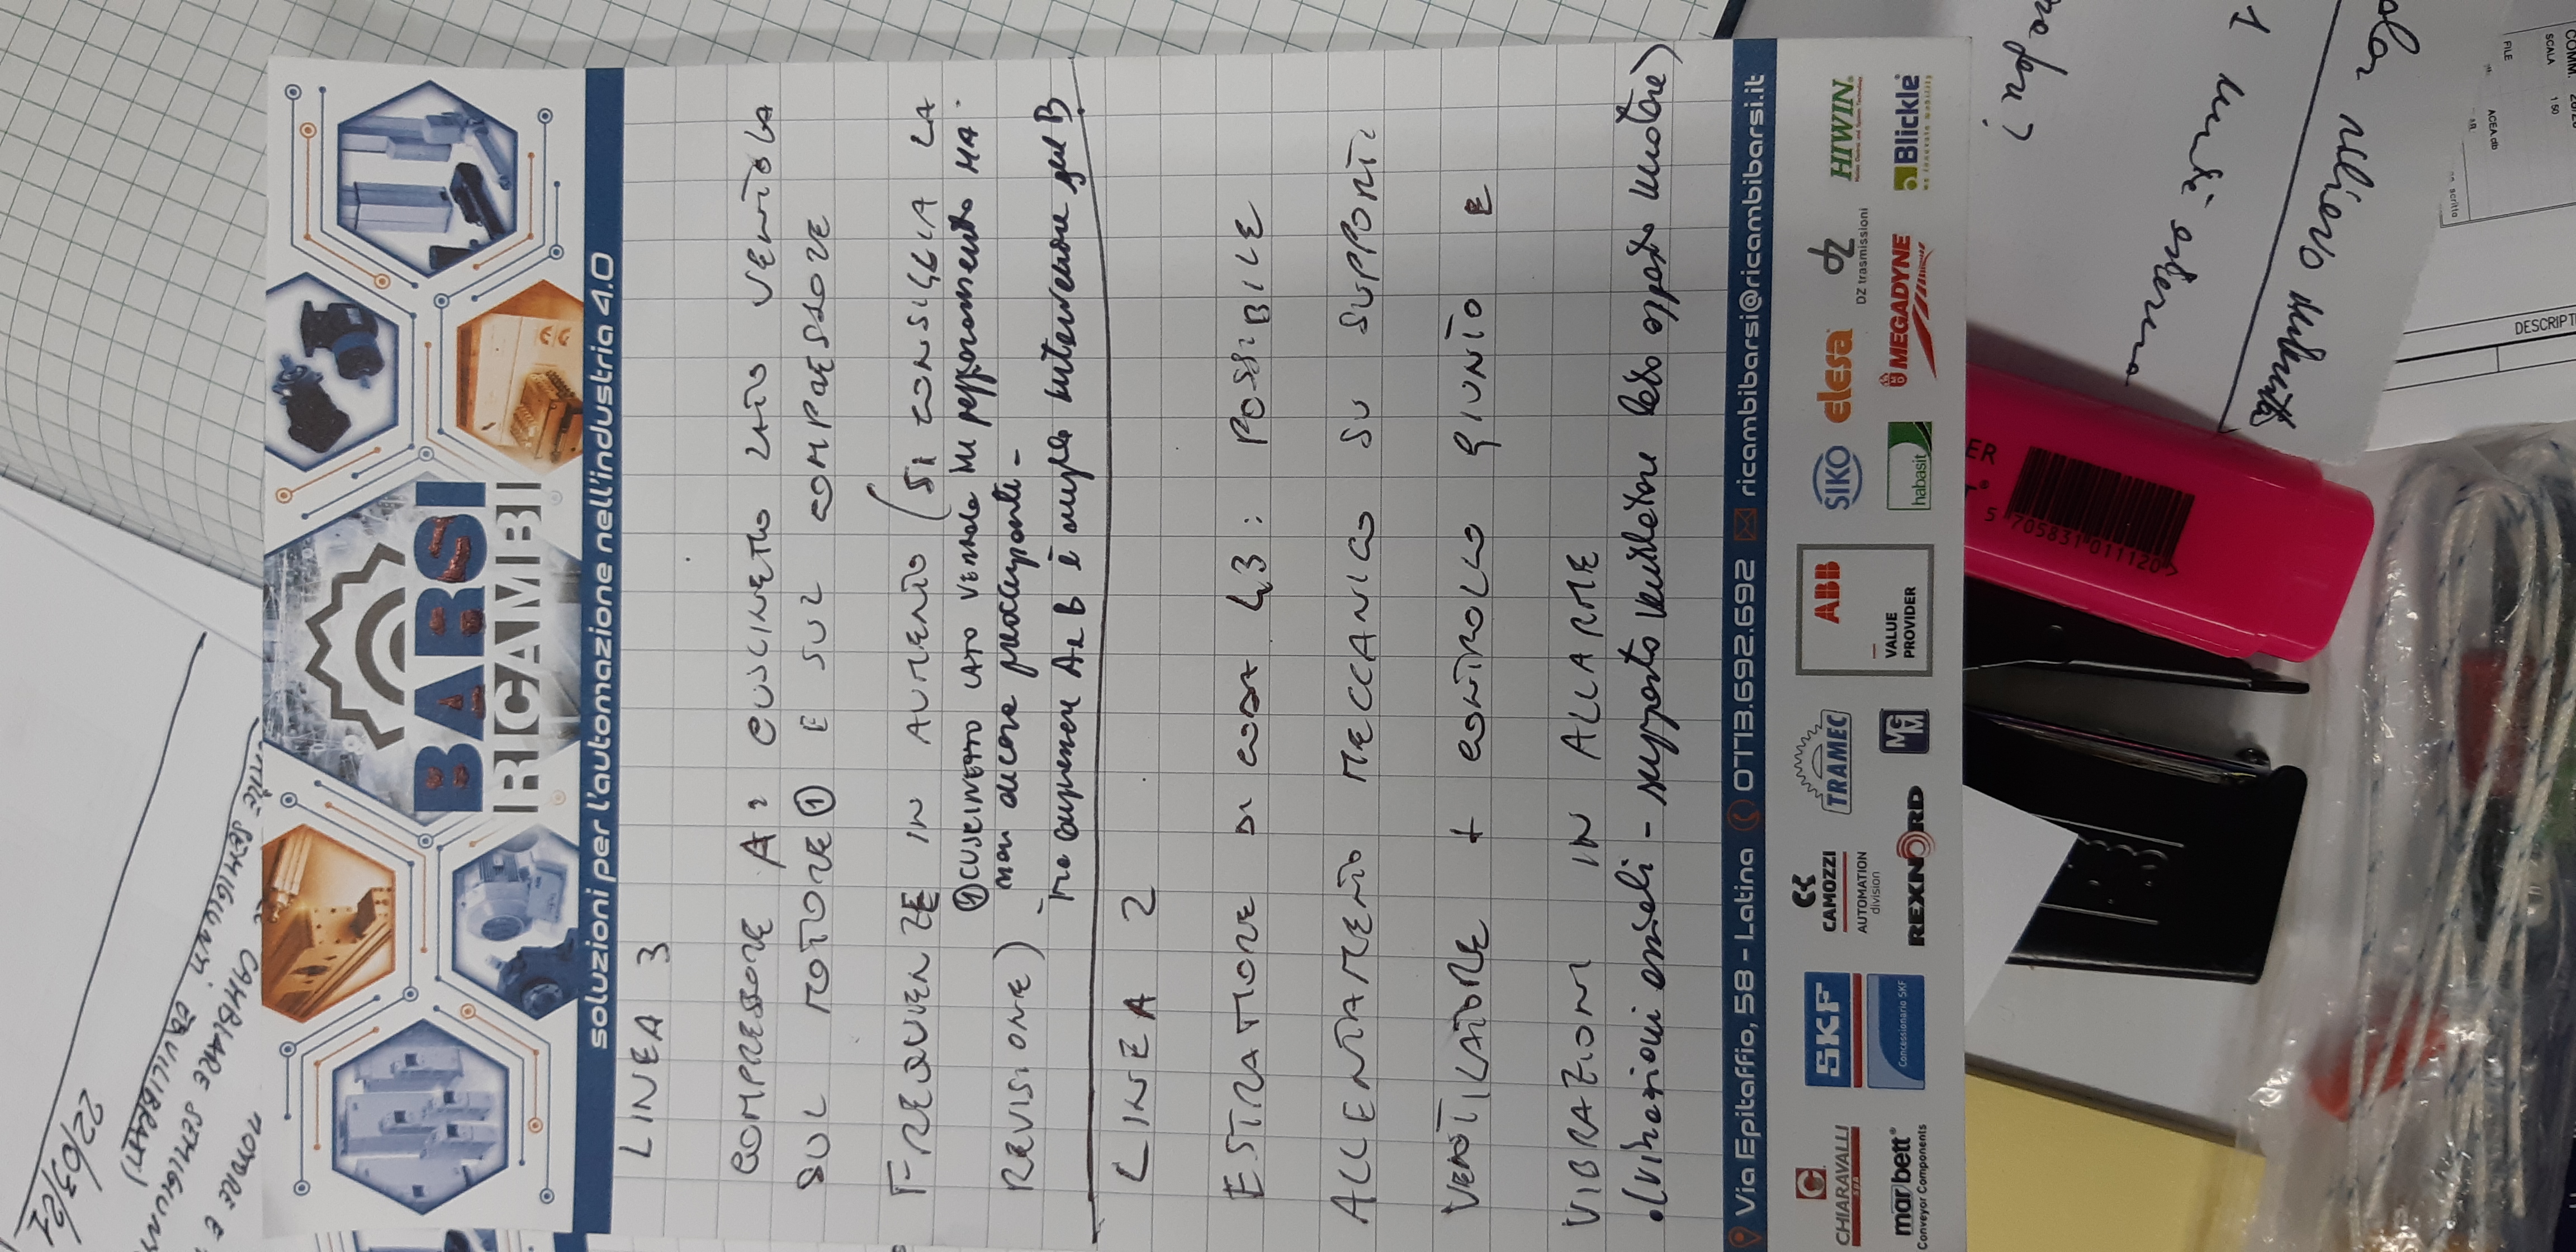 BARSI
RICAMBI
soluzioni per l'automazione nell'industria 4.0
LINEA 3
COMPRESSORE A: CUSCINETTO LATO VENTOLA
SUL MOTORE ① E SUL COMPRESSORE
FREQUENZE IN AUMENTO (SI CONSIGLIA LA
REVISIONE)
① CUSCINETTO LATO VENTOLA in peggioramento MA
non ancora preoccupante -
- Tra compressori A e B è meglio intervenire sul B.
LINEA 2
ESTRATTORE DI CODA L3: POSSIBILE
ALLENTAMENTO MECCANICO SU SUPPORTI
VENTILATORE + CONTROLLO GIUNTO E
VIBRAZIONI IN ALLARME
•(vibrazioni assiali - supporto ventilatore lato opposto motore)
Via Epitaffio, 58 - Latina 0773.692.692 ricambibarsi@ricambibarsi.it
CHIARAVALLI spa
SKF
CAMOZZI
AUTOMATION
division
TRAMEC
ABB
VALUE
PROVIDER
SIKO
elesa
DZ trasmissioni
HIWIN
marbett
Conveyor Components
Concessionario SKF
REXNORD
MGM
habasit
MEGADYNE
Blickle
we innovate mobility
22/03/21
CAMBIARE SEMIGIUNTI
EQUILIBRATI)
MOTORE E
1 unità esterna
ER
5 705831 011120
DESCRIPT
COMM.
SCALA
1 50
FILE
ACEA